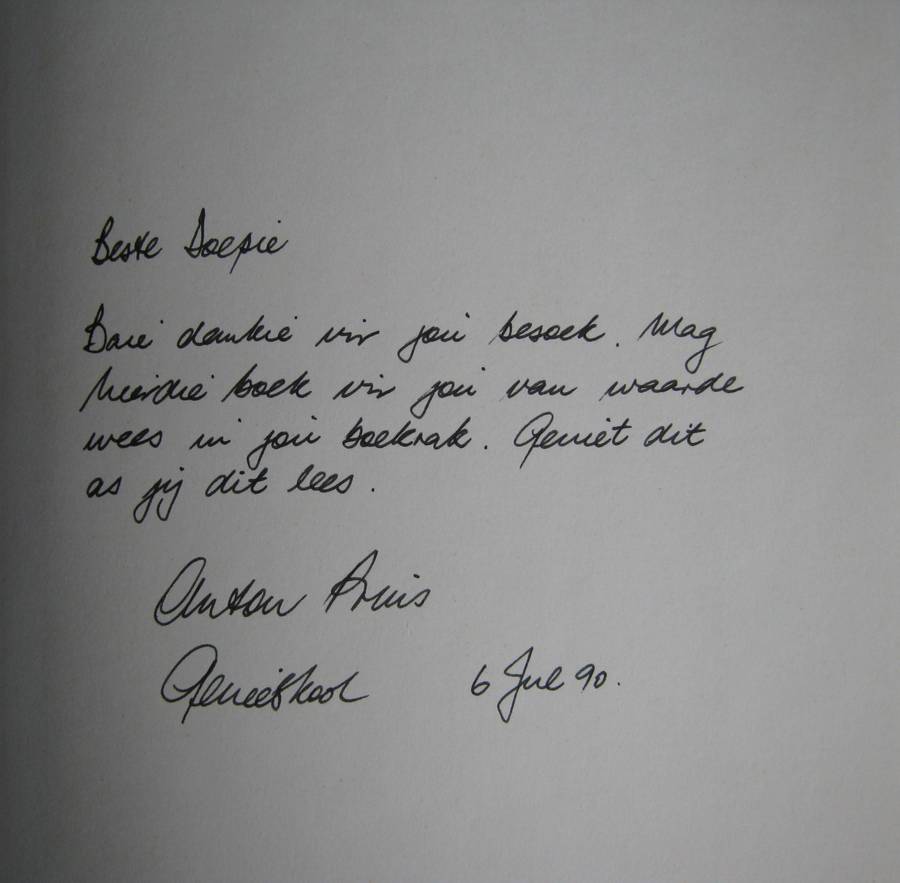 Beste Doepie
Baie dankie vir jou besoek. Mag
hierdie boek vir jou van waarde
wees in jou boekrak. Geniet dit
as jy dit lees.
Anton
Genieskool 6 Jul 90.